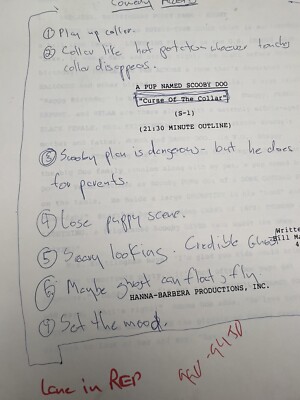 Comedy
① Play up collar.
② Collar like hot potato - whoever touches
collar disappears.
A PUP NAMED SCOOBY DOO
"Curse Of The Collar"
(S-1)
(21:30 MINUTE OUTLINE)
③ Scooby plan is dangerous - but he does
for parents.
④ Lose puppy scene.
⑤ Scary looking. Credible Ghost
Writte
Bill M
4
⑥ Maybe ghost can float, fly.
HANNA-BARBERA PRODUCTIONS, INC.
⑦ Set the mood.
in REP